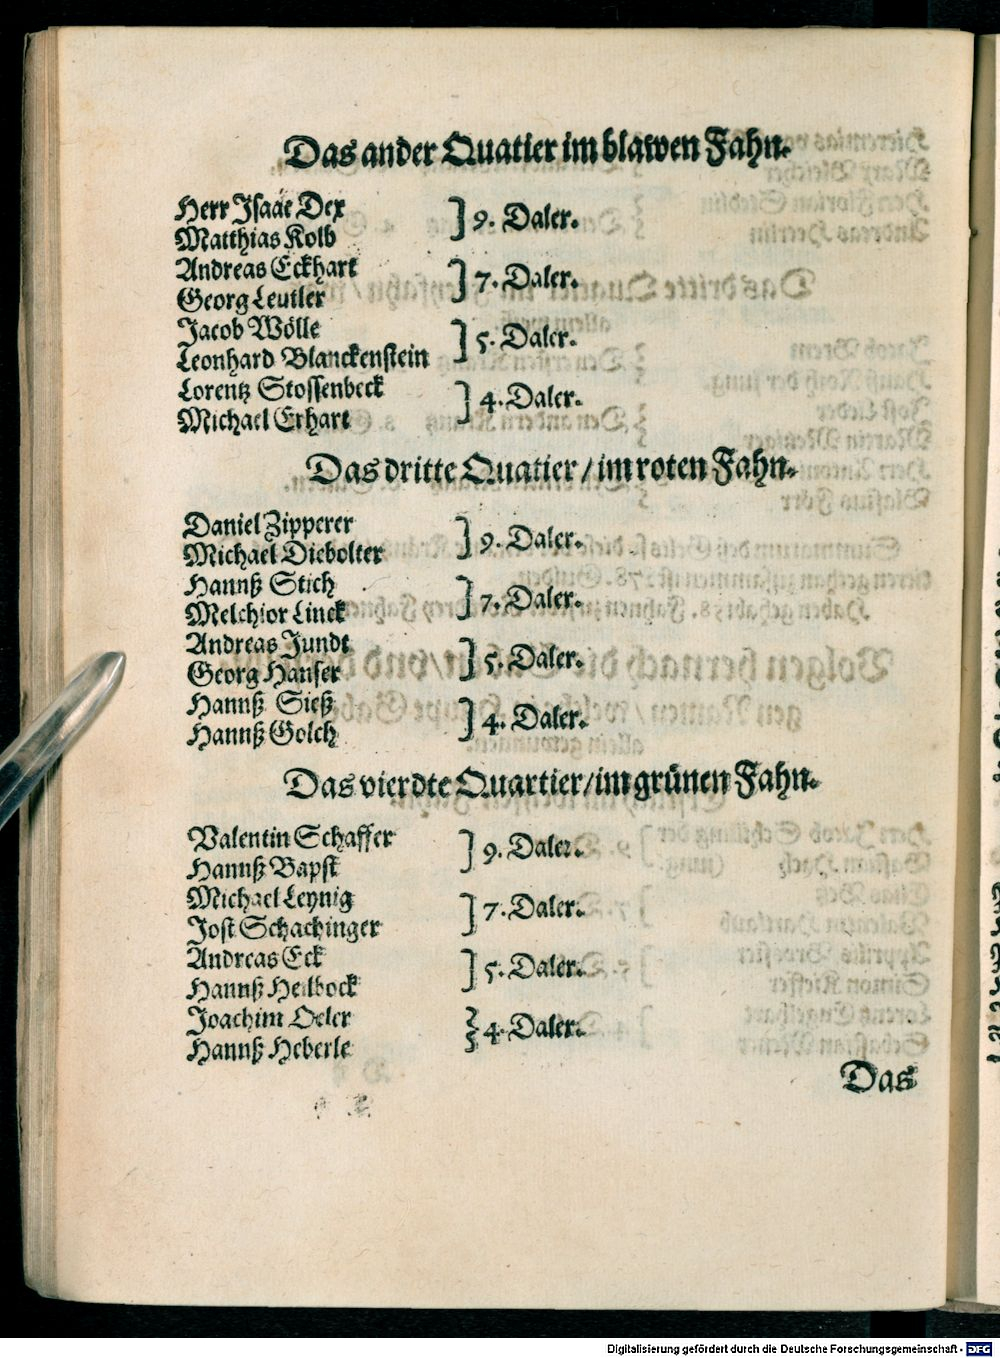 Das ander Quatier im blawen Fahn.
Herr Isaac Dex
Matthias Kolb ] 9. Daler.
Andreas Eckhart
Georg Leutler ] 7. Daler.
Jacob Wölle
Leonhard Blanckenstein ] 5. Daler.
Lorentz Stossenbeck
Michael Erhart ] 4. Daler.
Das dritte Quatier / im roten Fahn.
Daniel Zipperer
Michael Diebolter ] 9. Daler.
Hannß Stich
Melchior Linck ] 7. Daler.
Andreas Jundt
Georg Hanser ] 5. Daler.
Hannß Sieß
Hannß Golch ] 4. Daler.
Das vierdte Quartier / im grünen Fahn.
Valentin Schaffer
Hannß Bapst ] 9. Daler.
Michael Leynig
Jost Schachinger ] 7. Daler.
Andreas Eck
Hannß Heilbock ] 5. Daler.
Joachim Oeler
Hannß Heberle } 4. Daler.
Das
Digitalisierung gefördert durch die Deutsche Forschungsgemeinschaft - DFG